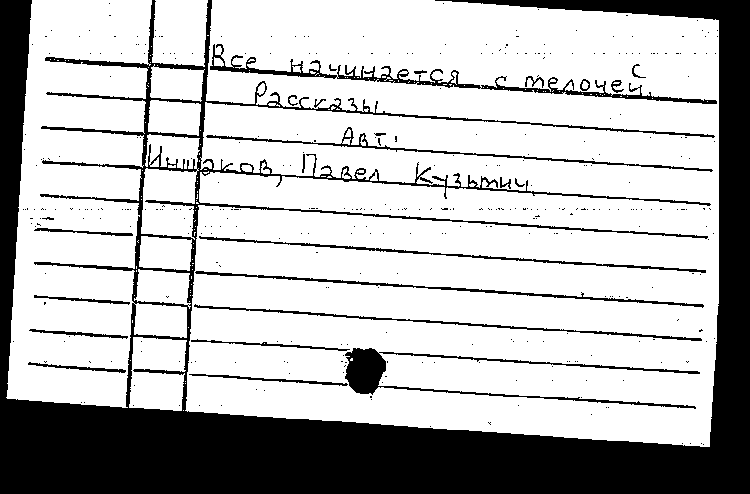 С
Все начинается с мелочей.
Рассказы.
Авт.
Иншаков, Павел Кузьмич.